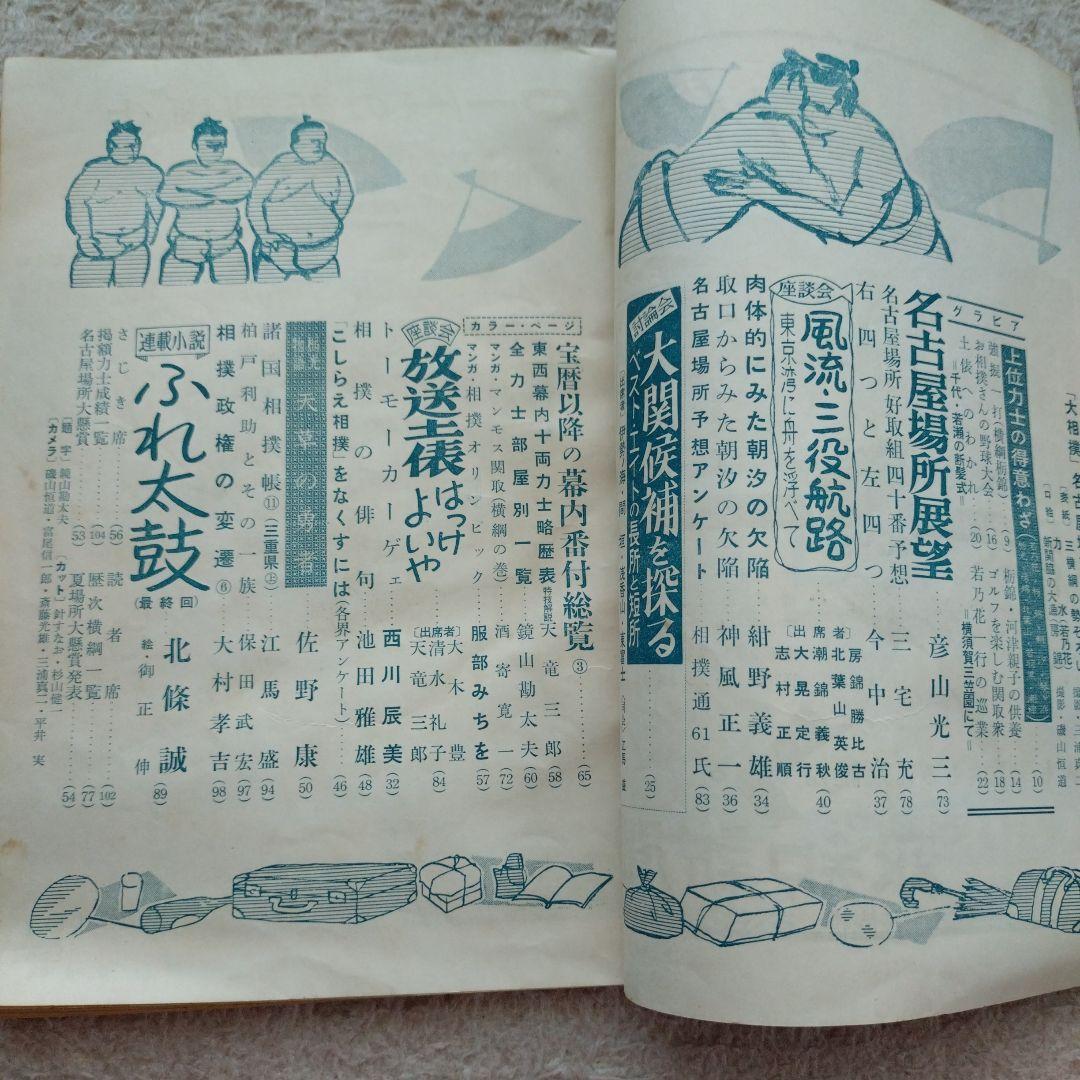 「大相撲」名古屋
三横綱の勢ぞ
グラビア
上位力士の得意わざ
(10)
強振一打(横綱栃錦)
(9)
栃錦・河津親子の供養
(14)
お相撲さんの野球大会
(16)
ゴルフを楽しむ関取衆
(18)
土俵へのわかれ
=千代ノ若瀬の断髪式=
(20)
若乃花一行の巡業
=横須賀三笠園にて=
(22)
名古屋場所展望
彦山光三
(73)
名古屋場所好取組四十番予想
三宅充
(78)
右四つと左四つ
今中治
(37)
座談会
風流・三役航路
東京湾に舟を浮べて
出席者
房錦勝比古
北葉山英俊
潮錦義秋
大晃定行
志村正順
(40)
肉体的にみた朝汐の欠陥
紺野義雄
(34)
取口からみた朝汐の欠陥
神風正一
(36)
名古屋場所予想アンケート
相撲通61氏
(83)
討論会
大関候補を探る
ベスト・エイトの長所と短所
(25)
カラー・ページ
宝暦以降の幕内番付総覧
③
(65)
東西幕内十両力士略歴表
特技解説
天竜三郎
(58)
全力士部屋別一覧
鏡山勘太夫
(60)
マンガ・マンモス関取(横綱の巻)
酒寄寛一
(72)
マンガ・相撲オリンピック
服部みちを
(57)
放送土俵はっけよいや
出席者
大木豊
清水礼子
天竜三郎
(84)
トーモーカーゲェ
西川辰美
(32)
相撲の俳句
池田雅雄
(48)
こしらえ相撲をなくすには(各界アンケート)
(46)
天草の勇者
佐野康
(50)
諸国相撲帳⑪(三重県㊤)
江馬盛
(94)
柏戸利助とその一族
保田武宏
(97)
相撲政権の変遷⑥
大村孝吉
(98)
連載小説
ふれ太鼓
(最終回)
北條誠
絵・御正伸
(89)
さじき席
(56)
読者席
(102)
掲額力士成績一覧
(104)
歴次横綱一覧
(77)
名古屋場所大懸賞
(53)
夏場所大懸賞発表
(54)
〔題字〕鏡山勘太夫
〔カット〕針すなお・杉山健二
〔カメラ〕磯山恒道・富尾信一郎・斎藤光雄・三浦真二・平井実